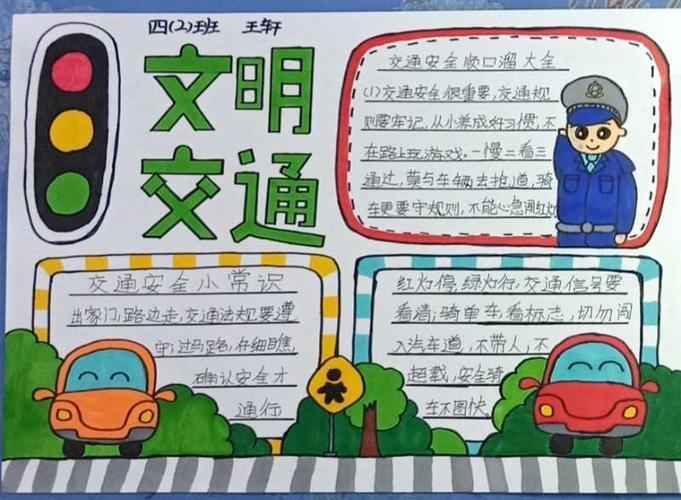 四(2)班 王轩
文明
交通
交通安全顺口溜大全
(1)交通安全很重要,交通规
则要牢记,从小养成好习惯,不
在路上玩游戏。一慢二看三
通过,莫与车辆去抢道,骑
车更要守规则,不能心急闯红灯
交通安全小常识
出家门,路边走,交通法规要遵
守;过马路,仔细瞧
确认安全才
通行
红灯停,绿灯行,交通信号要
看清;骑单车,看标志,切勿闯
入汽车道,不带人,不
超载,安全骑
车不图快